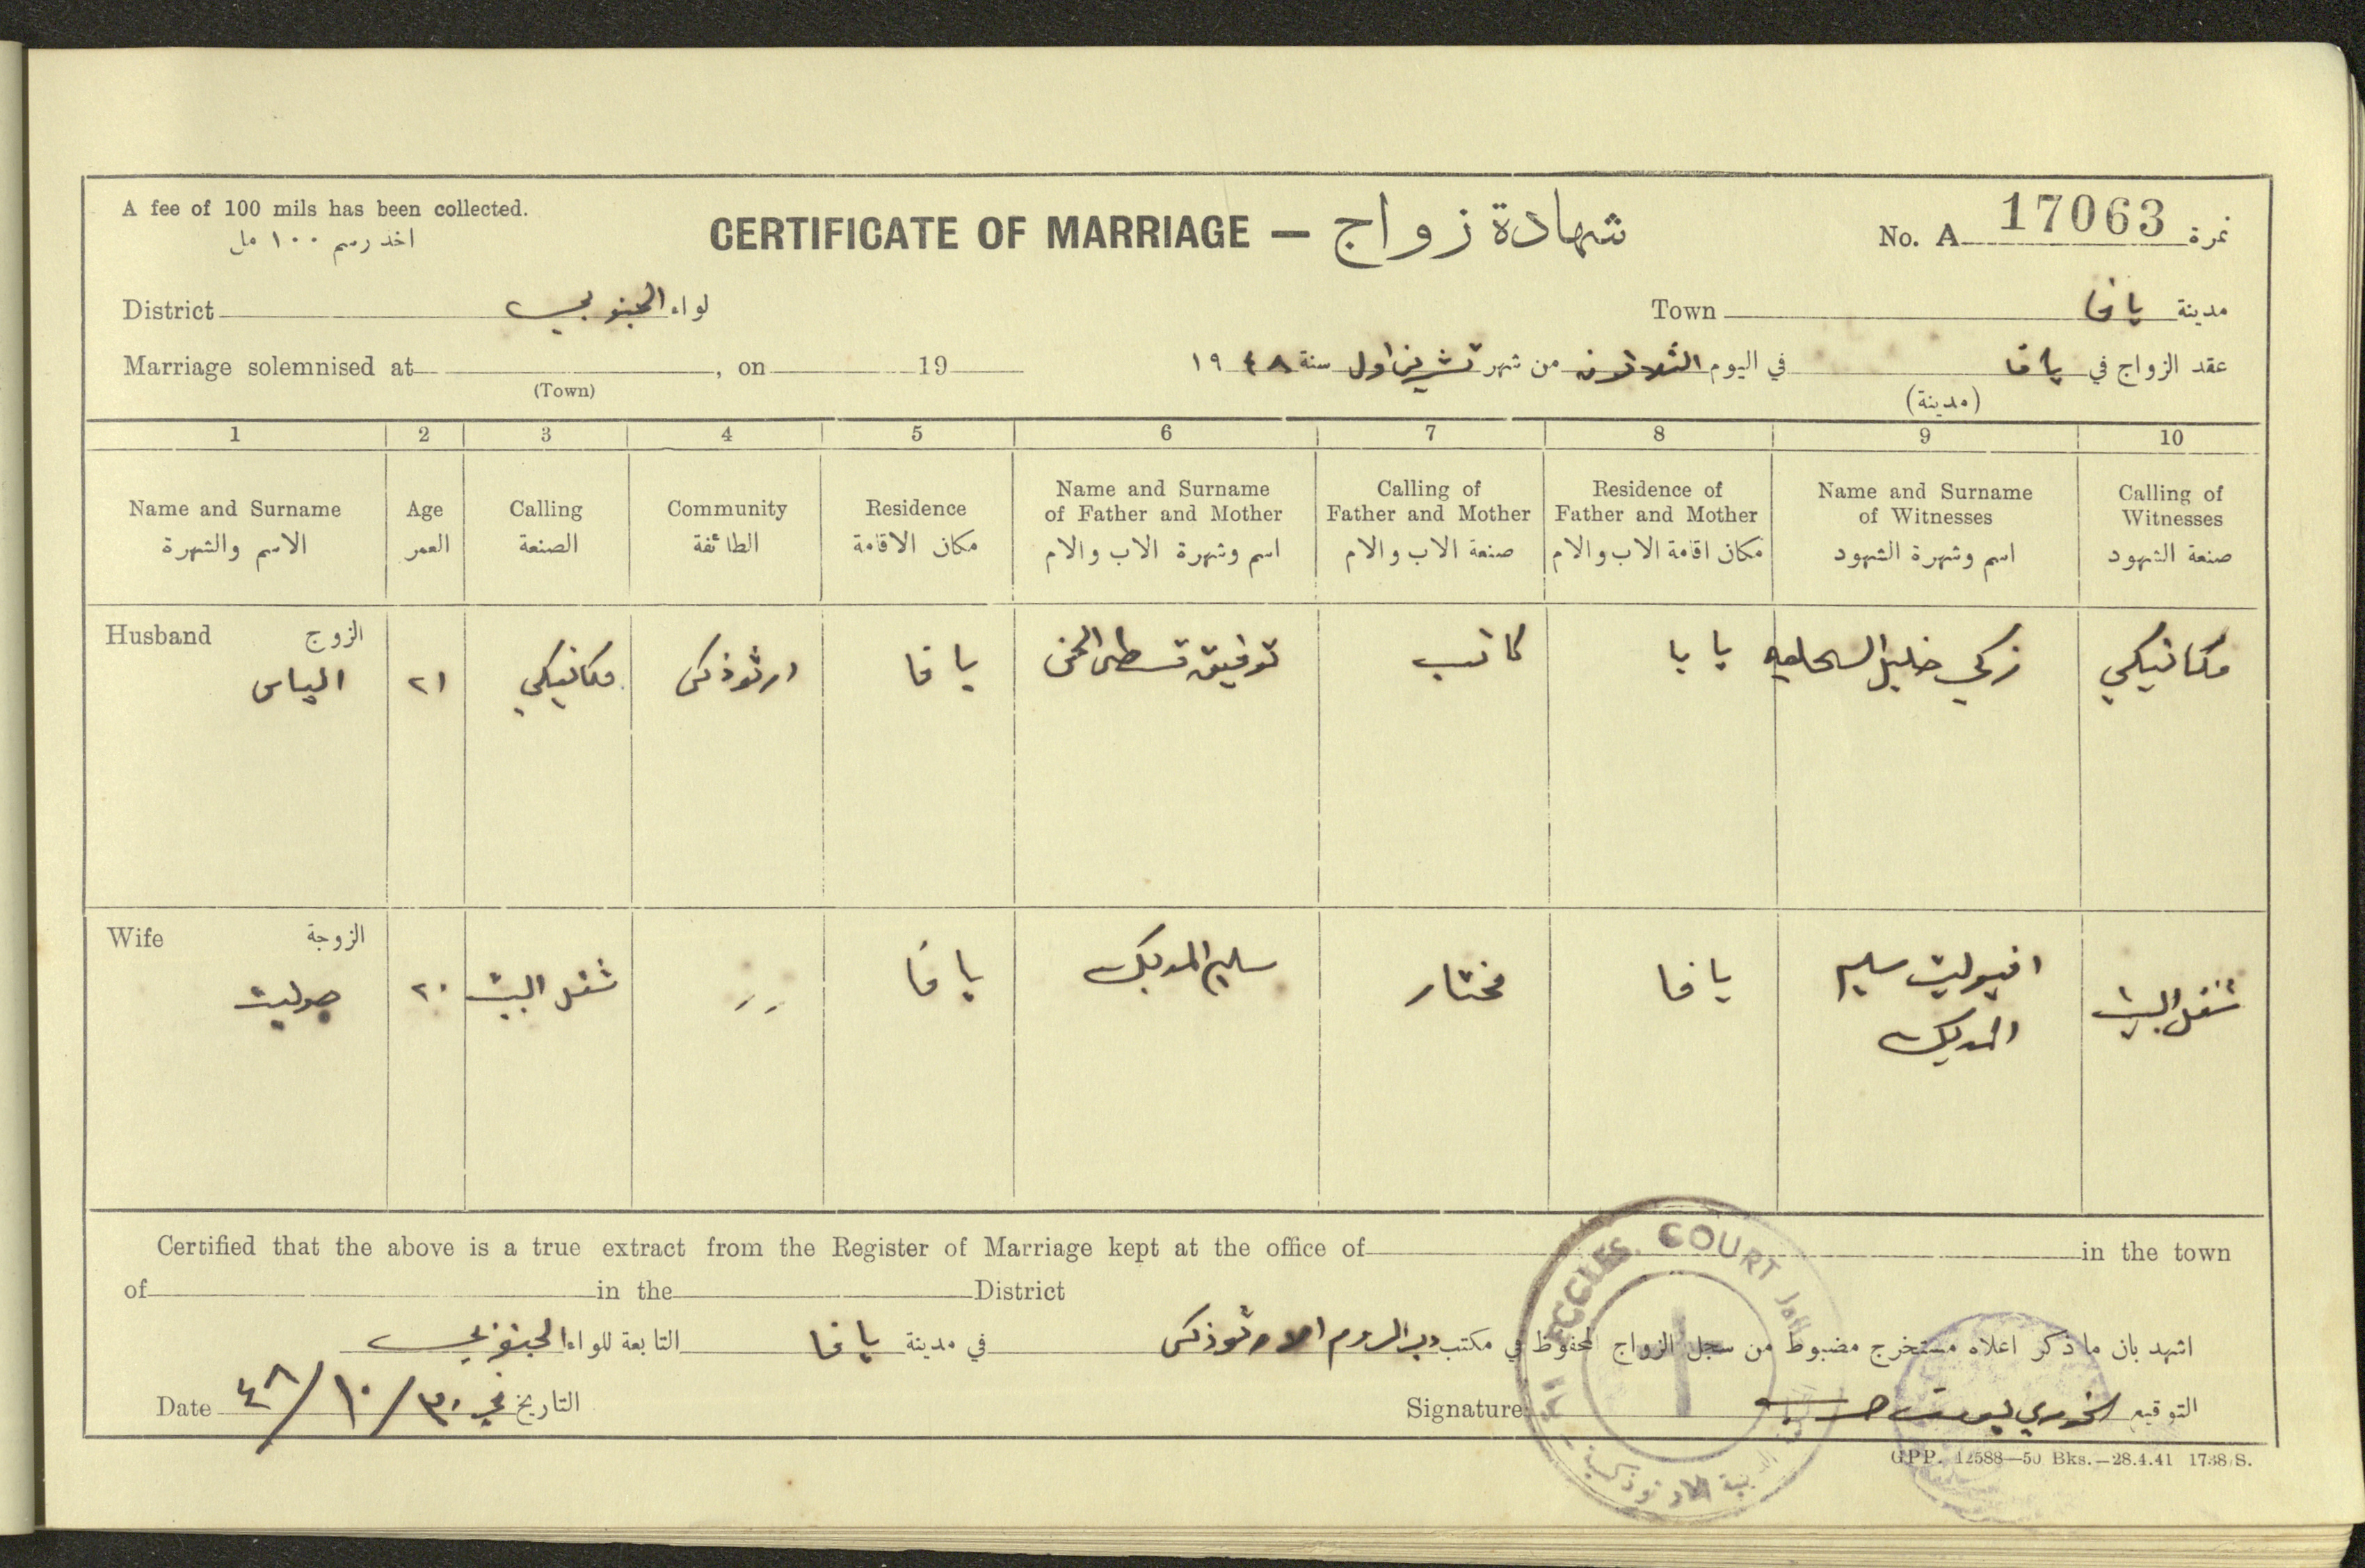 A fee of 100 mils has been collected.
اخذ رسم ١٠٠ مل
CERTIFICATE OF MARRIAGE — شهادة زواج
No. A 17063 نمرة
District لواء الجنوبي
Town مدينة يافا
Marriage solemnised at , on 19
(Town)
عقد الزواج في يافا في اليوم الثلاثون من شهر تشرين اول سنة ١٩٤٨
(مدينة)
1 2 3 4 5 6 7 8 9 10
Name and Surname
الاسم والشهرة
Age
العمر
Calling
الصنعة
Community
الطائفة
Residence
مكان الاقامة
Name and Surname
of Father and Mother
اسم وشهرة الاب والام
Calling of
Father and Mother
صنعة الاب والام
Residence of
Father and Mother
مكان اقامة الاب والام
Name and Surname
of Witnesses
اسم وشهرة الشهود
Calling of
Witnesses
صنعة الشهود
Husband الزوج
الياس
٢١
مكانيكي
ارثوذكسي
يافا
توفيق قسطندي
كاتب
يا يا
زكي خليل
مكانيكي
Wife الزوجة
جوليت
٢٠
شغل البيت
〃
يافا
سليم المدبك
مختار
يافا
افيوليت سليم
المدبك
شغل البيت
Certified that the above is a true extract from the Register of Marriage kept at the office of in the town
of in the District
اشهد بان ما ذكر اعلاه مستخرج مضبوط من سجل الزواج المحفوظ في مكتب دير الروم الارثوذكسي في مدينة يافا التابعة للواء الجنوبي
Date ٤٨/١٠/٣٠ التاريخ في
Signature التوقيع الخوري
ECCLES. COURT Jaffa
G.P.P. 12588—50 Bks.—28.4.41 1738/S.